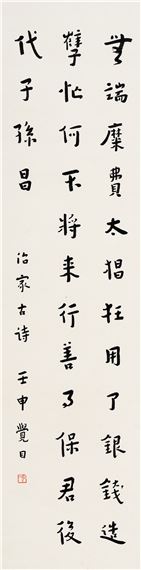 無端糜費太猖狂用了銀錢造
孽忙何不将来行善了保君後
代子孫昌
治家古诗 壬申覺日